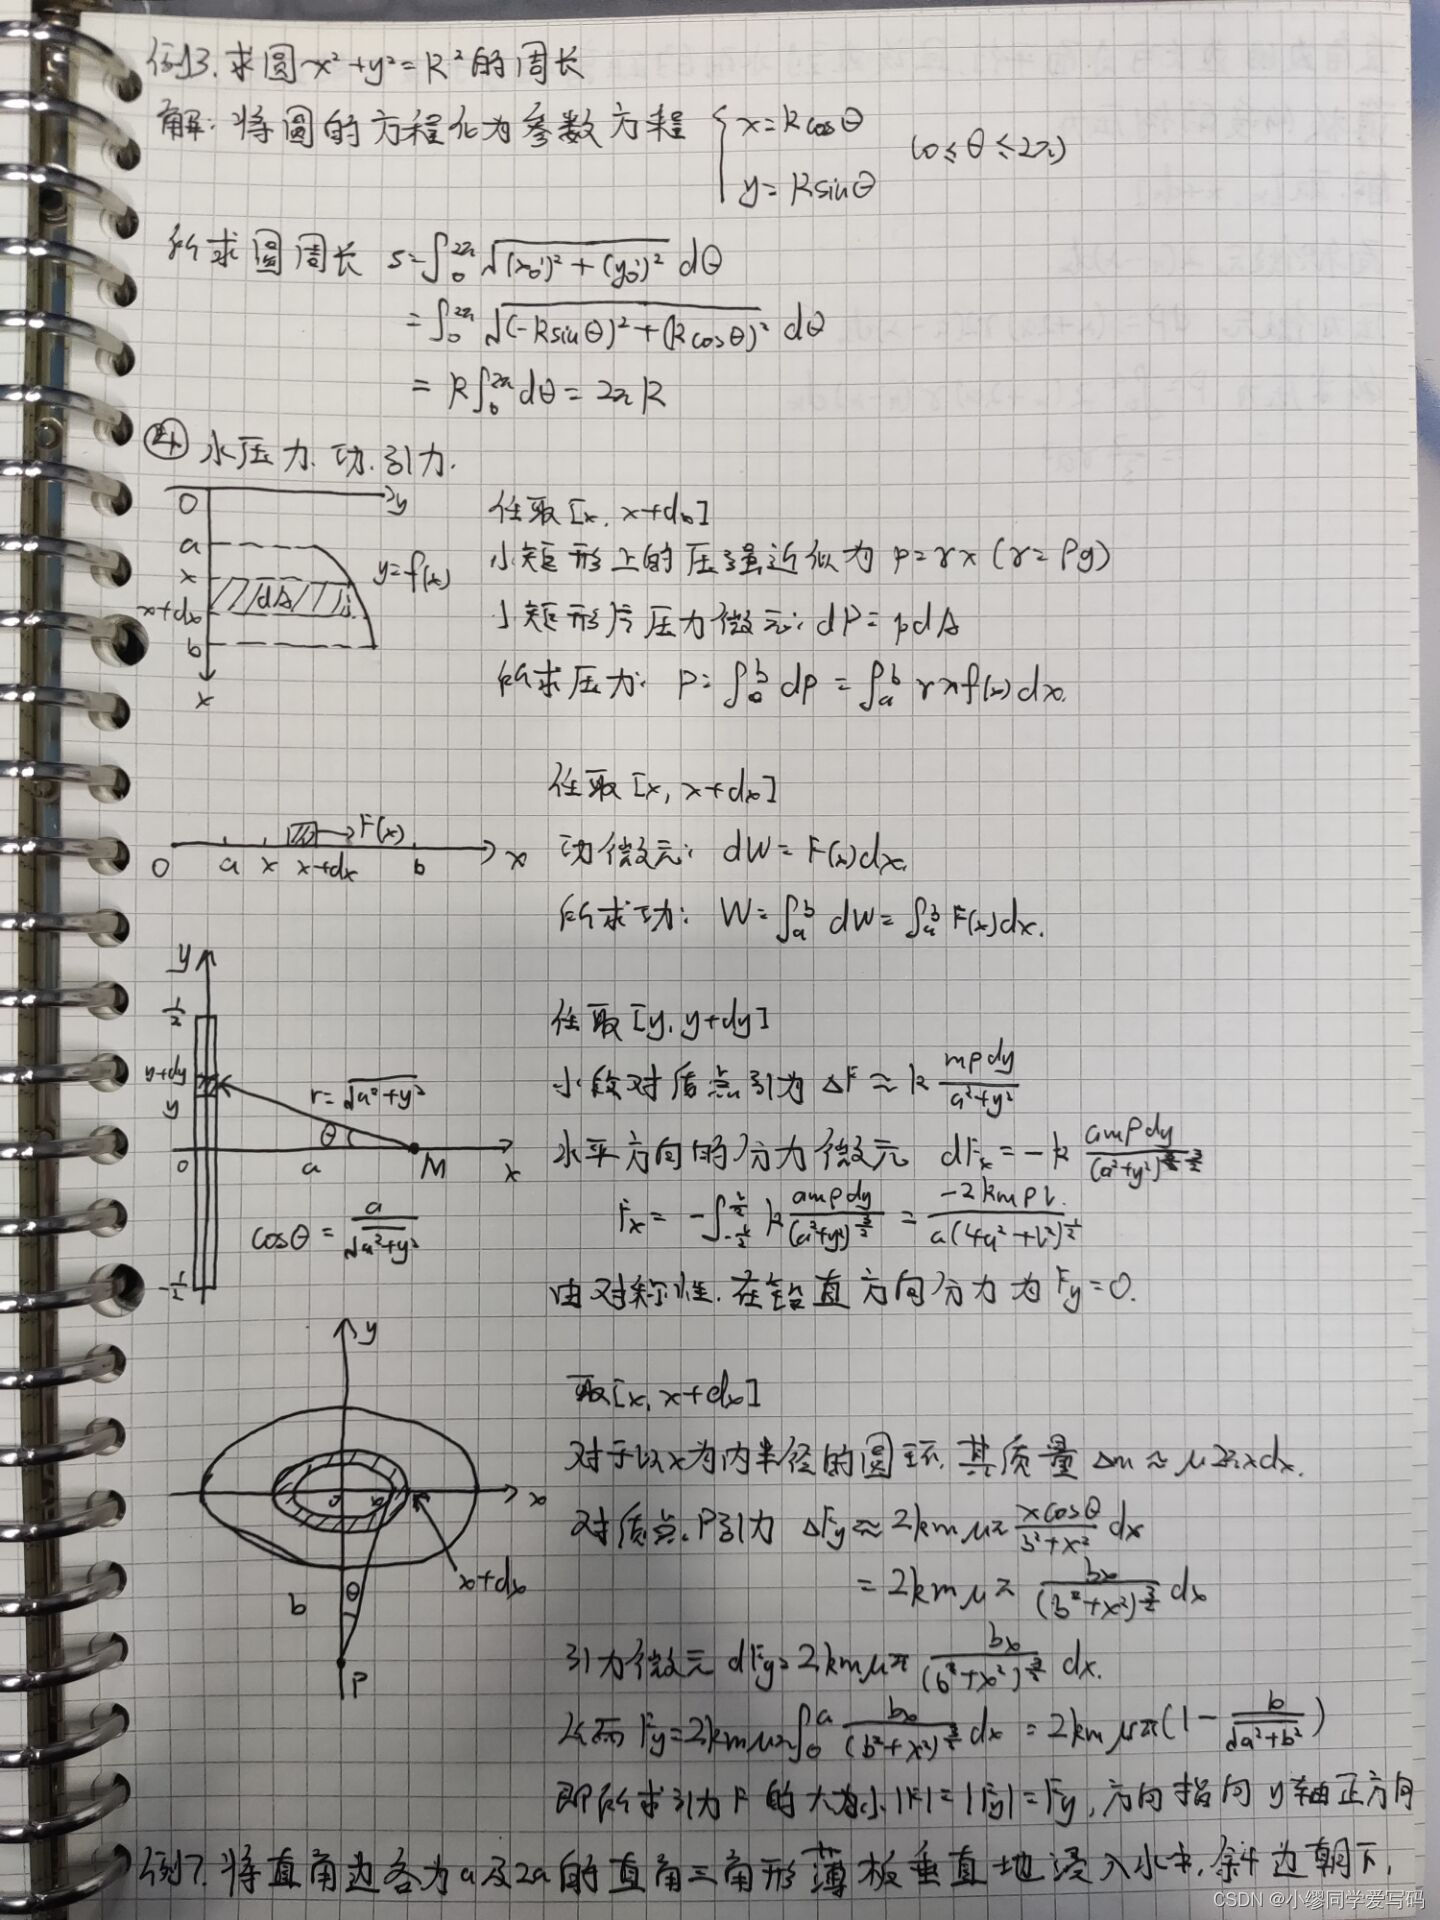 例13. 求圆 x²+y²=R² 的周长
解: 将圆的方程化为参数方程 { x=Rcosθ
y=Rsinθ (0≤θ≤2π)
所求圆周长 s=∫₀^2π √((x'θ)²+(y'θ)²) dθ
=∫₀^2π √((-Rsinθ)²+(Rcosθ)²) dθ
= R∫₀^2π dθ = 2πR
④ 水压力. 功. 引力.
O y
a
x
x+dx
b
x
dA
y=f(x)
任取[x, x+dx]
小矩形上的压强近似为 p=γx (γ=ρg)
小矩形片压力微元: dP=pdA
所求压力: P=∫ₐᵇ dP = ∫ₐᵇ γxf(x)dx.
O a x x+dx b x
F(x)
任取[x, x+dx]
功微元: dW=F(x)dx.
所求功: W=∫ₐᵇ dW=∫ₐᵇ F(x)dx.
y
l/2
y+dy
y
O
-l/2
r=√(a²+y²)
θ
a
M
x
cosθ = a/√(a²+y²)
任取[y, y+dy]
小段对质点引力 ΔF≈k mρdy/(a²+y²)
水平方向的分力微元 dFx=-k amρdy/(a²+y²)^(3/2)
Fx = -∫_{-l/2}^{l/2} k amρdy/(a²+y²)^(3/2) = -2kmρl/(a(4a²+l²)^(1/2))
由对称性, 在铅直方向分力为 Fy=0.
y
x
o
x
x+dx
b
θ
P
取[x, x+dx]
对于以x为内半径的圆环, 其质量 Δm≈μ2πxdx.
对质点P引力 ΔFy≈2kmμπ xcosθ/(b²+x²) dx
= 2kmμπ bx/(b²+x²)^(3/2) dx
引力微元 dFy=2kmμπ bx/(b²+x²)^(3/2) dx.
从而 Fy=2kmμπ∫₀ᵃ bx/(b²+x²)^(3/2) dx = 2kmμπ(1 - b/√(a²+b²))
即所求引力F的大小为 |F|=|Fy|=Fy, 方向指向y轴正方向
例7. 将直角边各为a及2a的直角三角形薄板垂直地浸入水中, 斜边朝下,
CSDN @小缪同学爱写码